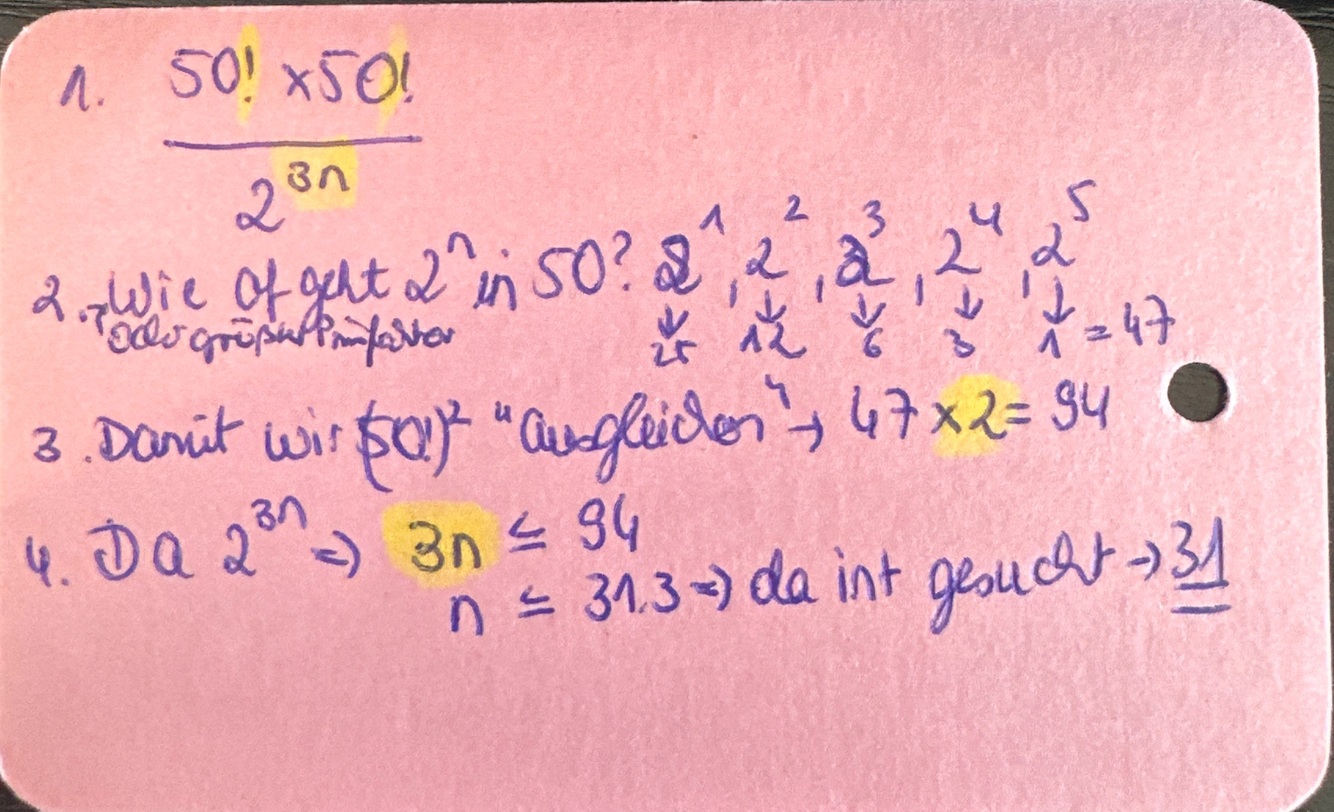 1. 50! x 50!
2^3n
2. Wie of geht 2^n in 50? 2^1, 2^2, 2^3, 2^4, 2^5
→ oder größer Primfaktor 25 12 6 3 1 = 47
3. Damit wir (50!)^2 "ausgleichen" → 47 x 2 = 94
4. Da 2^3n => 3n ≤ 94
n ≤ 31.3 => da int gesucht → 31